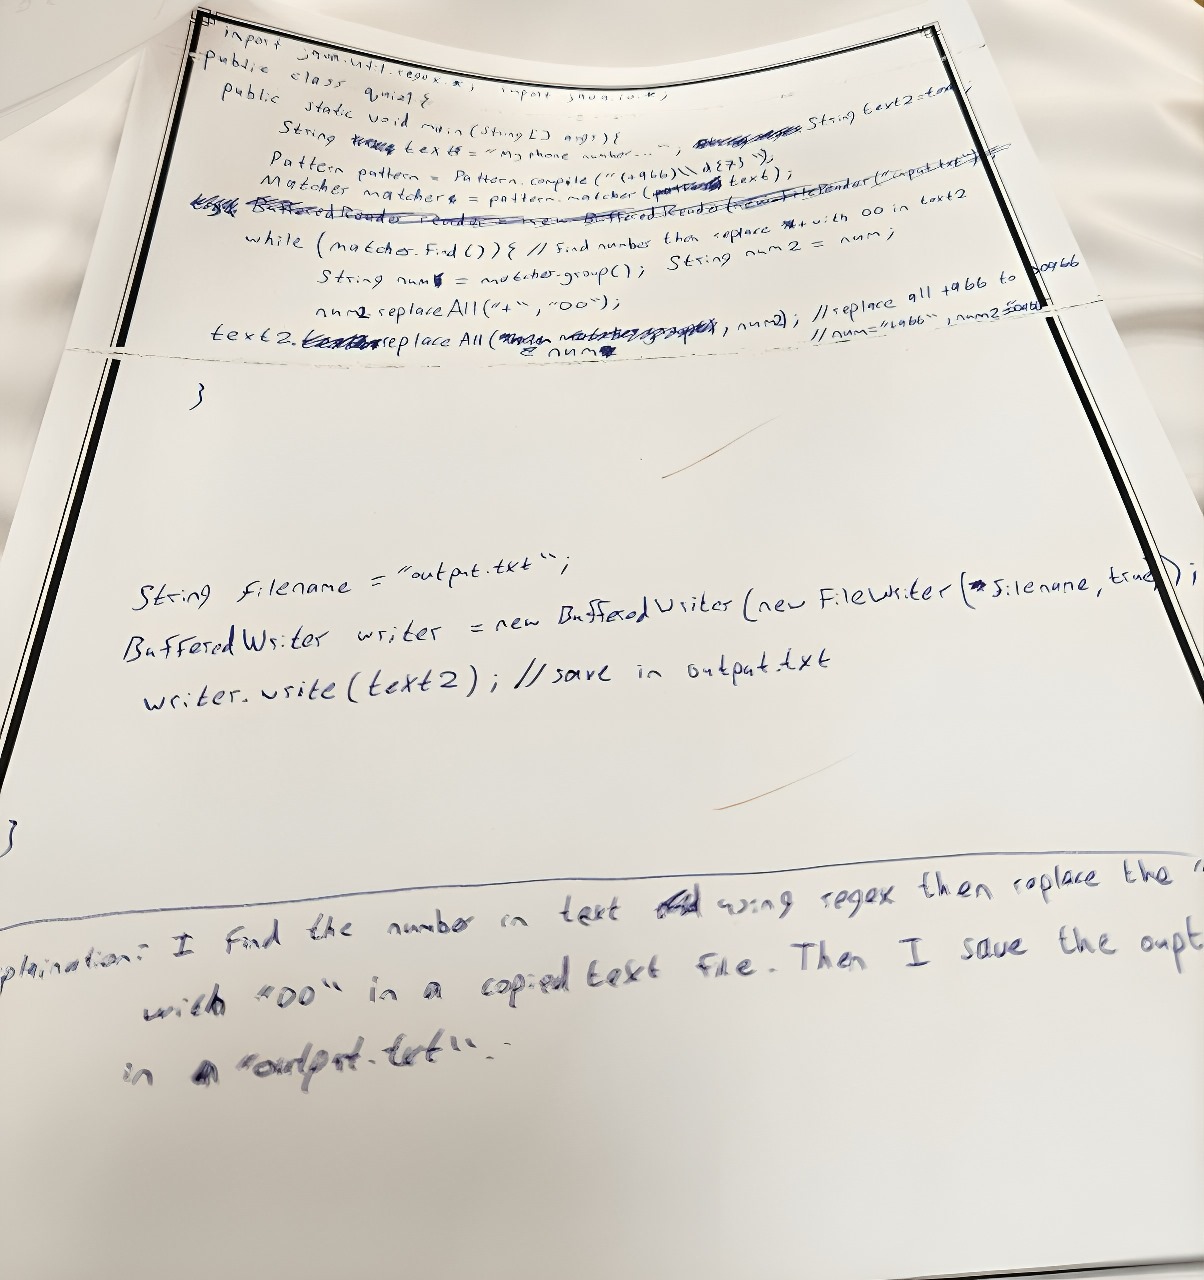 import java.util.regex.*; import java.io.*;
public class quiz1 {
public static void main (String [] args) {
String text = "My phone number..."; String text2=text;
Pattern pattern = Pattern.compile("(+966)\\d{7}");
Matcher matcher = pattern.matcher(text);
BufferedReader reader = new BufferedReader(new FileReader("input.txt"))
while (matcher.find()) { // find number then replace + with 00 in text2
String num = matcher.group(); String num2 = num;
num2 replaceAll("+", "00");
text2.replaceAll(num, num2); //replace all +966 to 00966
//num="+966", num2=00966
}
String filename = "output.txt";
BufferedWriter writer = new BufferedWriter(new FileWriter(filename, true));
writer.write(text2); //save in output.txt
}
plaination: I find the number in text using regex then replace the "
with "00" in a copied text file. Then I save the oupt
in a "output.txt".